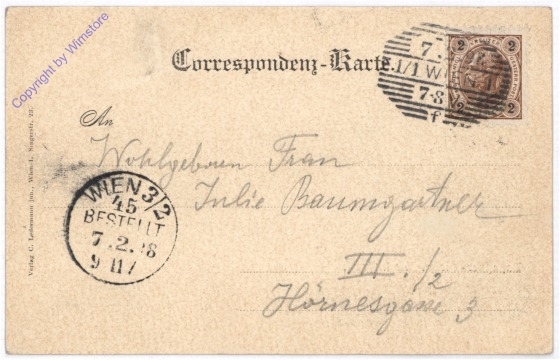 Copyright by Wimstore
Correspondenz-Karte.
2 2
2 2
7.
1/1 W
7-8
f
An
Wohlgeboren Frau
Julie Baumgartner
III./2
Hörnesgasse 3
WIEN 3/2
45
BESTELLT
7.2.98
9
Verlag C. Ledermann jun., Wien-I.